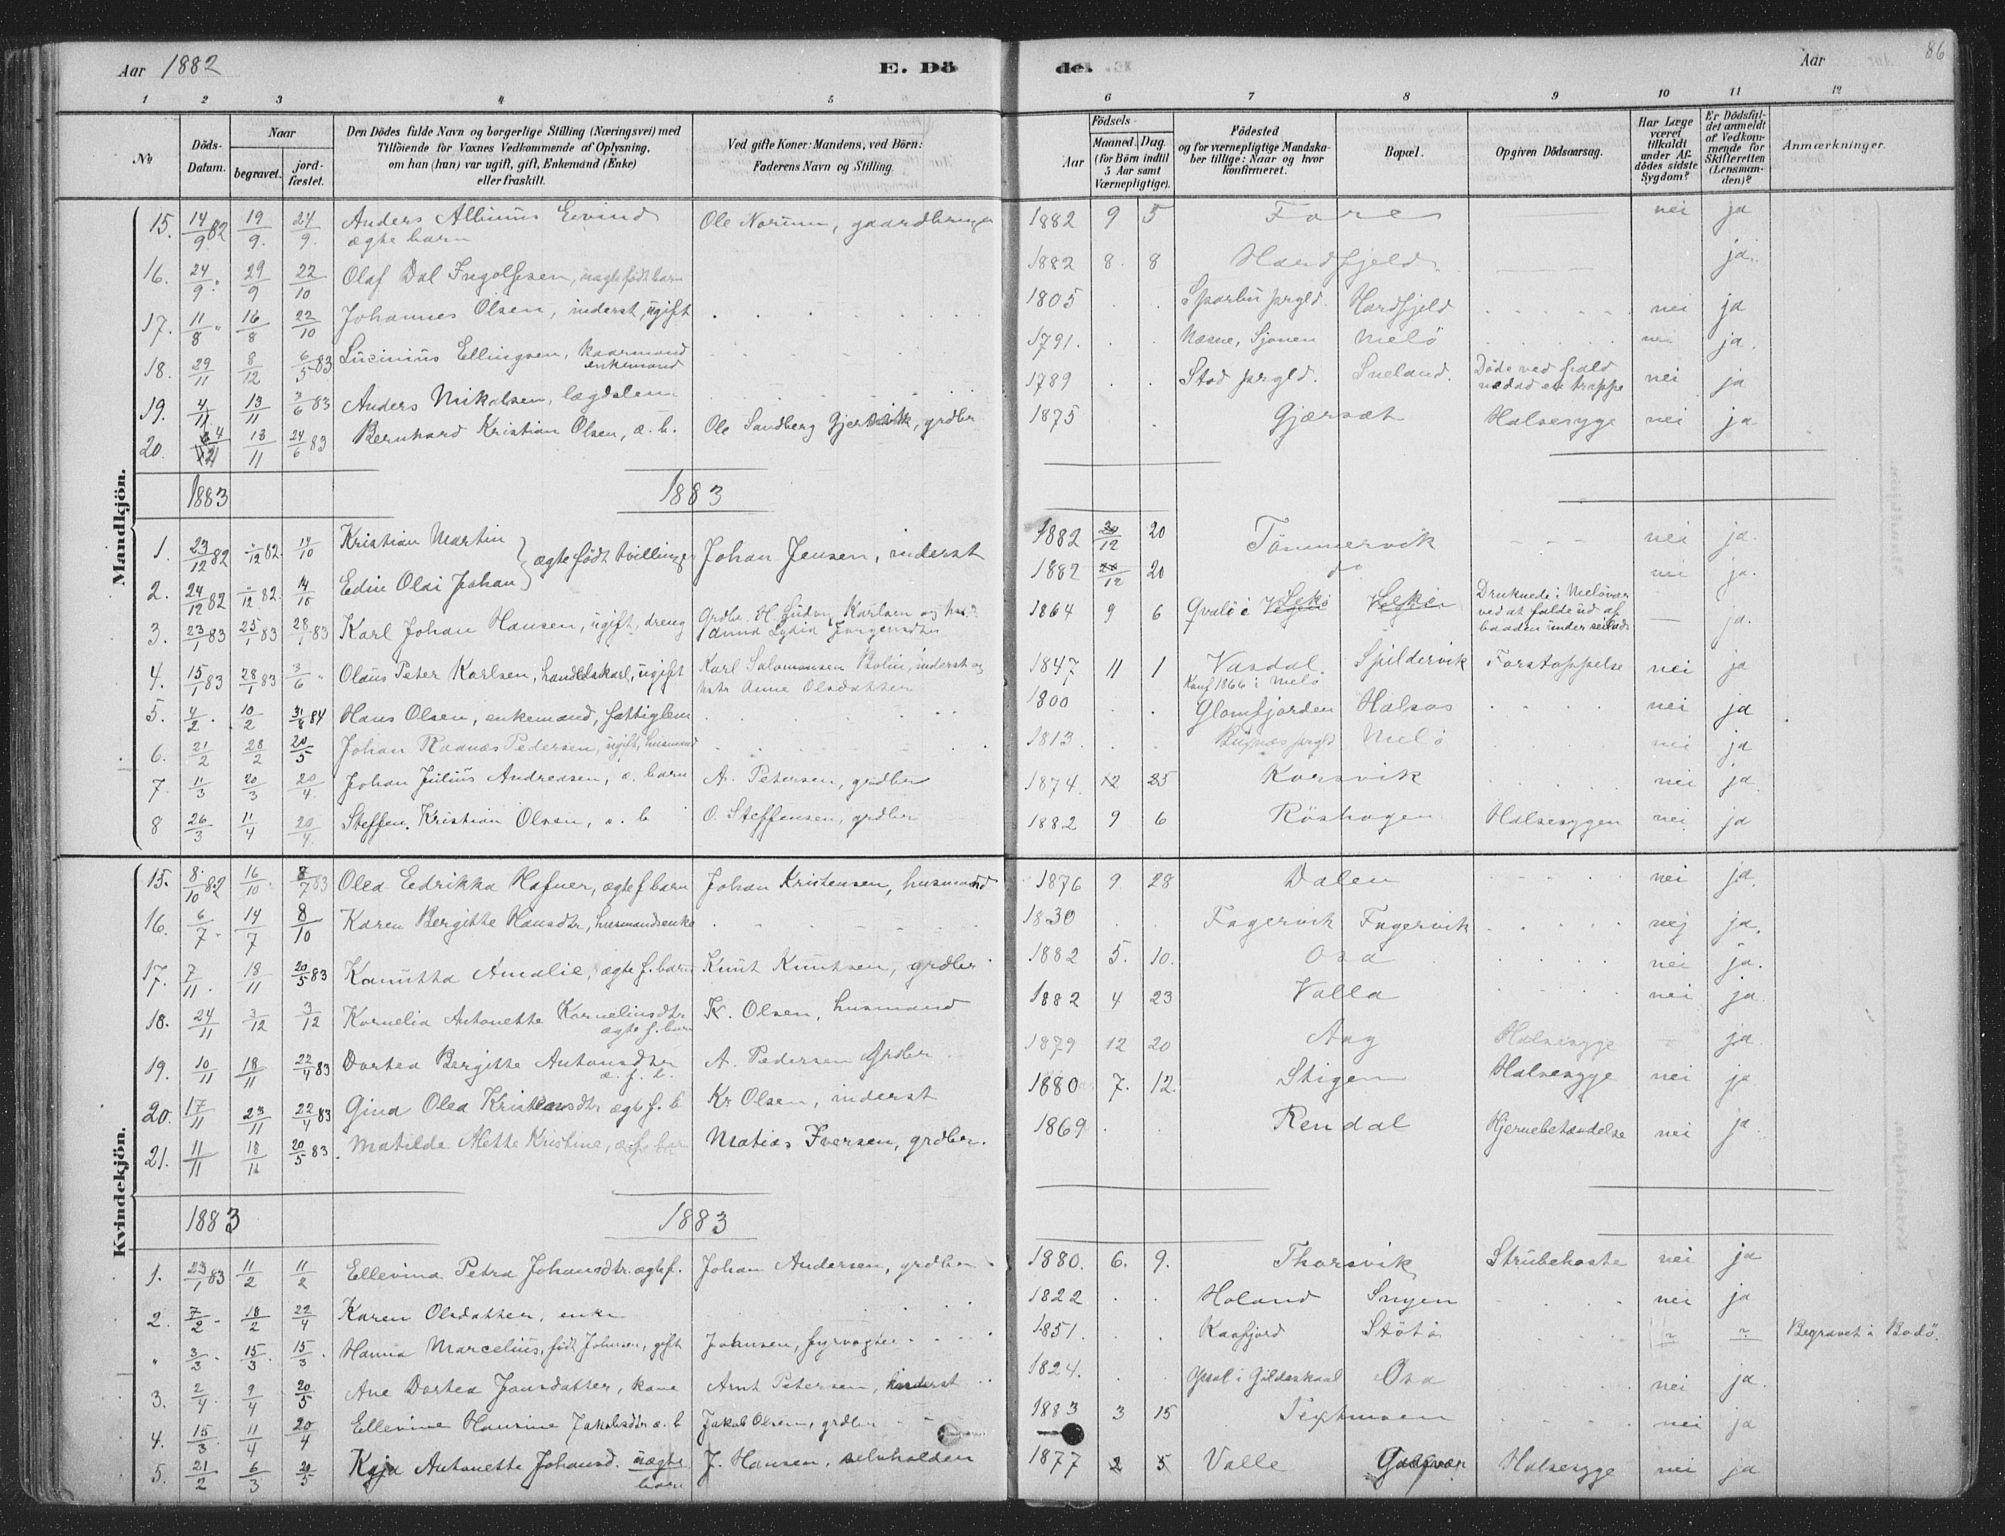 Aar 1882 E. Dö de. Aar 86
1 2 3 4 5 6 7 8 9 10 11 12
No
Döds-Datum.
Naar
begravet.
jord-fæstet.
Den Dödes fulde Navn og borgerlige Stilling (Næringsvei) med
Tilföiende for Voxnes Vedkommende af Oplysning,
om han (hun) var ugift, gift, Enkemand (Enke)
eller fraskilt.
Ved gifte Koner: Mandens, ved Börn:
Faderens Navn og Stilling.
Aar
Födsels-
Maaned. Dag.
(for Börn indtil
5 Aar samt
Værnepligtige).
Födested
og for værnepligtige Mandska-
ber tillige: Naar og hvor
konfirmeret.
Bopæl.
Opgiven Dödsaarsag.
Har Læge
været
tilkaldt
under Af-
dödes sidste
Sygdom?
Er Dödsfal-
det anmeldt
af Vedkom-
mende for
Skifteretten
(Lensman-
den)?
Anmærkninger.
Mandkjön.
15. 14/9 82 19/9. 24/9. Anders Albinus Eivind ægte barn Ole Norum, gaardbruger 1882 9 5 Fore nei ja
16. 24/9 " 29/9 22/10 Olaf Dal Ingolfsen, uægte født barn 1882 8. 8 Handfjeld ja.
17. 11/8 " 16/8 22/10 Johannes Olsen, inderst, ugift 1805 Sparbu prgld. Hardfjeld nei ja
18. 29/11 8/12 6/5 83 Lucinius Ellingsen, kaarmand enkemand 1791. Næsne, Sjonen Melö nei ja.
19. 4/11 13/11 3/6 83 Anders Nikolsen, lægdslem 1789 Stod prgld. Sneland. Döde ved fald nedad en trappe nei ja
20. 13/11 24/6 83 Bernhard Kristian Olsen, æ. b. Ole Sandberg Gjersvik, grdbr 1875 Gjærsæt Halsesyge nei ja
1883 1883
1. 23/12 82 "/12 82. 14/10 Kristian Martin } ægte født tvillinger Johan Jensen, inderst 1882 20/12 20 Tömmervik nei ja.
2. 24/12 82 "/12 82. 14/10 Edin Olai Johan 1882 20/12 20 do nei ja.
3. 23/1 83 25/1 83 28/1 83 Karl Johan Hansen, ugift, dreng Grdbr. H. Ludvig Karlsen og hu. Anna Lydia Jörgensdtr 1864 9 6 Qvalö i Lekö Druknede i Melövær ved at falde ud af baaden under seilads — ja.
4. 15/1 83 28/1 83 3/6 " Olaus Peter Karlsen, handelskarl, ugift Karl Salomonsen Bolin, inderst og hstr Anne Olsdatter 1847 11 1 Vasdal Konf 1866 i Melö Spildervik Forstoppelse nei ja
5. 4/2. 10/2 31/8 84 Hans Olsen, enkemand, fattiglem 1800 Glomfjorden Halsos nei ja
6. 21/2 28/2 20/5 Johan Raanæs Pedersen, ugift, husmand 1813. Melö nei ja
7. 11/3 20/3 20/4. Johan Julius Andreasen, æ. barn A. Petersen, grdbr 1874. 12 25 Korsvik nei ja.
8 26/3 11/4 20/4. Steffen Kristian Olsen, æ. b O. Steffensen, grdbr 1882 9 6 Röshagen Halsesygen nei ja
Kvindekjön.
15. 8/10 82 16/10 8/7 83 Olea Eedrikka Hafner, ægte f. barn Johan Kristensen, husmand 1876 9. 28 Dalen nei ja.
16. 6/7. 14/7 8/10 Karen Bergitte Hansdtr, husmandsenke 1830 Fagervik Fagervik nej ja.
17. 7/11. 18/11 20/5 83 Kanutta Amalie, ægte f. barn Knut Knutsen, grdbr 1882 5. 10. Osa nei ja.
18. 24/11 3/12 3/12 Kornelia Antonette Korneliusdtr ægte f. barn K. Olsen, husmand 1882 4 23 Valla nei ja.
19. 10/11 18/11 22/4 83 Dortea Bergitte Antonsdtr æ. f. b. A. Pedersen Grdbr 1879 12 20 Aag Halsesyge ja.
20. 17/11 23/11 22/4 83 Gina Olea Kristensdtr ægte f. b Kr Olsen, inderst 1880 7. 12. Stigen Halsesyge nei ja
21. 11/11 18/11 20/5 83. Matilde Mette Kristine, Matias Iversen, grdbr. 1869 Rendal Hjernebetændelse nei ja.
1883 1883
1. 23/1 83 11/2 11/2 Ellevina Petra Johansdtr. ægte f. Johan Andersen, grdbr 1880. 6. 9. Thorsvik Strubehoste nei ja
2. 7/2. 18/2 22/4 Karen Olsdatter, enke 1822 Holand Snyen nei ja
" 3/3. 15/3. 15/3. Hanna Marcelius, født Johnsen, gift Johnsen, fyrvogter 1851. Kaafjord Stötö " " Begravet i Bodö.
3. 2/4. 9/4 20/5 Ane Dortea Jonsdatter, kone Arnt Petersen, inderst 1824. i Gildeskaal Osa nei ja.
4. 15/3. 11/4 20/4 Ellevine Hansine Jakobsdtr æ. b Jakob Olsen, grdbr 1883 3 15 nei ja
5. 21/2 6/3 20/5 Kaja Antonette Johansd. uægte barn J. Hansen, selvholden 1877 2 5 Valle Halsesyge nei ja